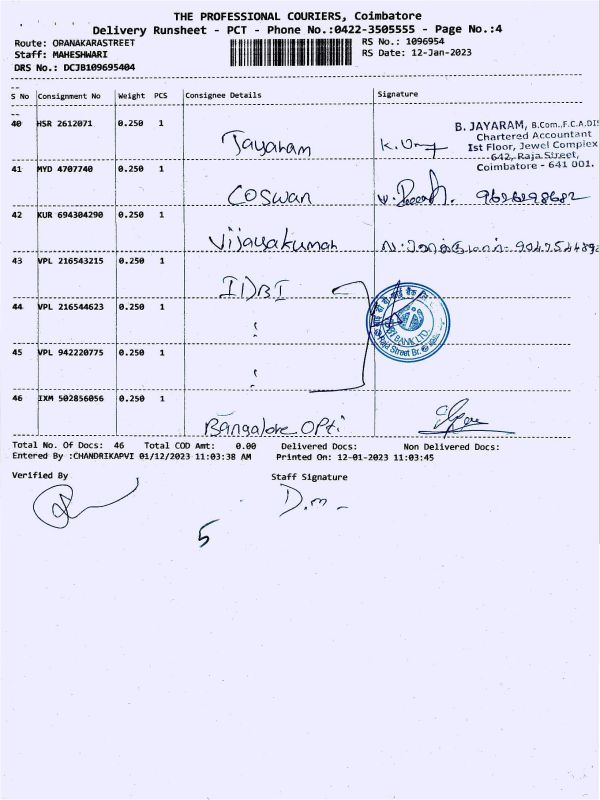 THE PROFESSIONAL COURIERS, Coimbatore
Delivery Runsheet - PCT - Phone No.:0422-3505555 - Page No.:4
Route: OPANAKARASTREET RS No.: 1096954
Staff: MAHESHWARI RS Date: 12-Jan-2023
DRS No.: DCJB109695404
S No Consignment No Weight PCS Consignee Details Signature
40 HSR 2612071 0.250 1 Jayaram
B. JAYARAM, B.Com.,F.C.A.DIS
Chartered Accountant
Ist Floor, Jewel Complex
642, Raja Street,
Coimbatore - 641 001.
41 MYD 4707740 0.250 1 COSWAN 9626298682
42 KUR 694304290 0.250 1 Vijayakumar
43 VPL 216543215 0.250 1 IDBI
44 VPL 216544623 0.250 1
IDBI BANK LTD
Raja Street Br.
45 VPL 942220775 0.250 1
46 IXM 502856056 0.250 1 Bangalore OPti
Total No. Of Docs: 46 Total COD Amt: 0.00 Delivered Docs: Non Delivered Docs:
Entered By :CHANDRIKAPVI 01/12/2023 11:03:38 AM Printed On: 12-01-2023 11:03:45
Verified By Staff Signature
D.m.
5